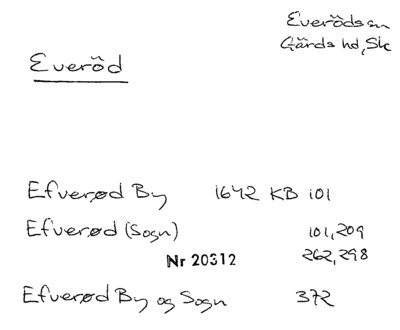 Everödssn
Gärds hd, Sk
Everöd
Efverød By 1642 KB 101
Efverød (Sogn) 101, 209
Nr 20312 262, 298
Efverød By og Sogn 372